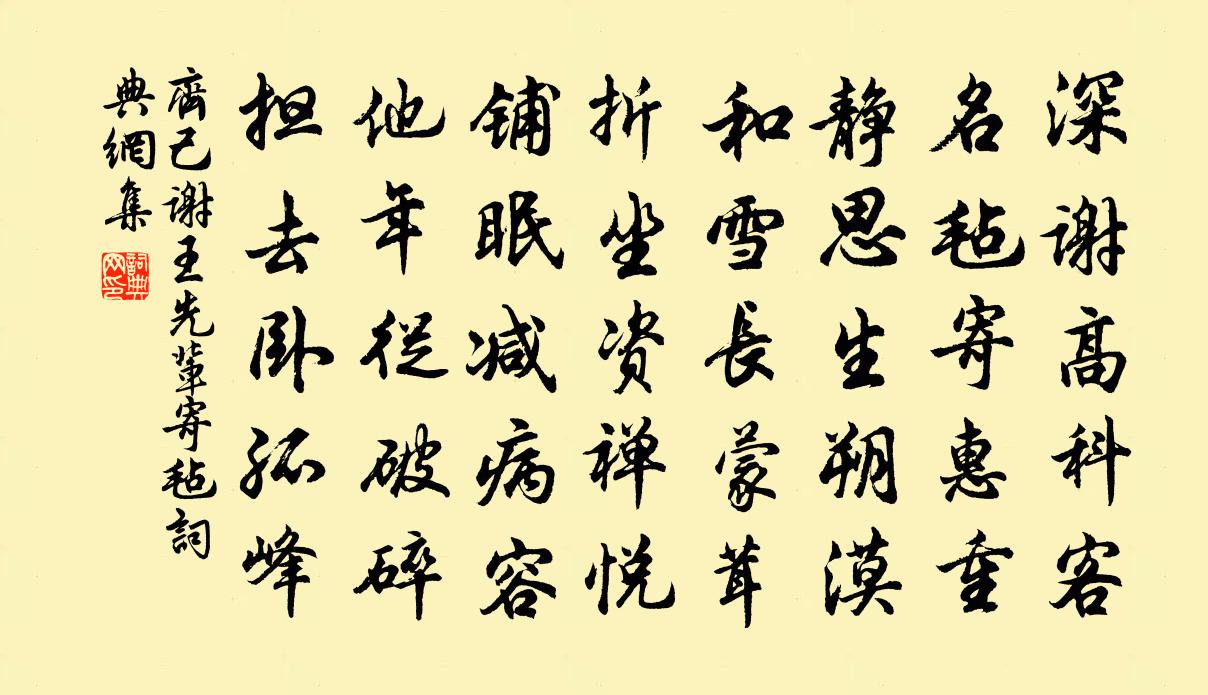 深谢高科客
名毡寄惠重
静思生朔漠
和雪长蒙茸
折坐资禅悦
铺眠减病容
他年从破碎
担去卧孤峰
齊己谢王先輩寄毡詞
典網集
詞典
网印